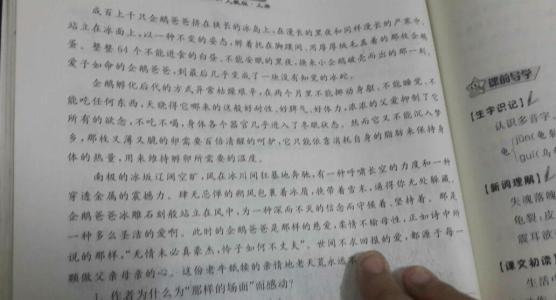 人教版·上册
成百上千只企鹅爸爸挤在狭长的冰岛上,在漫长的黑夜和同样漫长的严寒中,
站立在冰面上,以一种不变的姿态,孵着托在脚蹼间、用厚厚绒毛盖着的那枚企鹅
蛋。整整64个不能进食的白昼、不能安眠的黑夜,换来小企鹅破壳而出的那一刻,
爱子如命的企鹅爸爸,到最后几乎变成了一块没有知觉的冰砣。
企鹅孵化后代的方式异常枯燥艰辛,在两个月里不能挪动身躯,不能睡觉,不
能吃任何东西,天晓得它哪来的这般好耐性、好脾气、好体力,浓浓的父爱抑制了它
所有的欲念,不吃不喝,身体各个器官几乎进入了冬眠状态。然而它又不能沉入梦
乡,那枚又薄又脆的卵需要百倍清醒的呵护,它只能依靠消耗自身的脂肪来保持身
体的热量,用来维持孵卵所需要的温度。
南极的冰坂辽阔空旷,风在冰川间狂暴地奔驰,有一种呼啸长空的力度和一种
穿透金属的震撼力。肆无忌惮的朔风包裹着冰盾,挟带着雪末,逼得你无处躲藏。
企鹅爸爸冰雕石刻般站立在风中,为一种深而不灭的信念而守候着、坚持着。那是
一种多么圣洁的爱啊。此时的企鹅爸爸是那样的慈爱,柔情不输母性,正如诗中所
说的那样,“无情未必真豪杰,怜子如何不丈夫”。世间不求回报的爱,都源于每一
颗做父亲母亲的心。这份老牛舐犊的亲情地老天荒永远不
1.作者为什么为“那样的场面”而感动?
课前导学
【生字识记】
认识多音字,
龟
jūn(龟
guī(乌
【新词理解】
失魂落魄
龟裂:皮
震耳欲
【课文初读】
生活